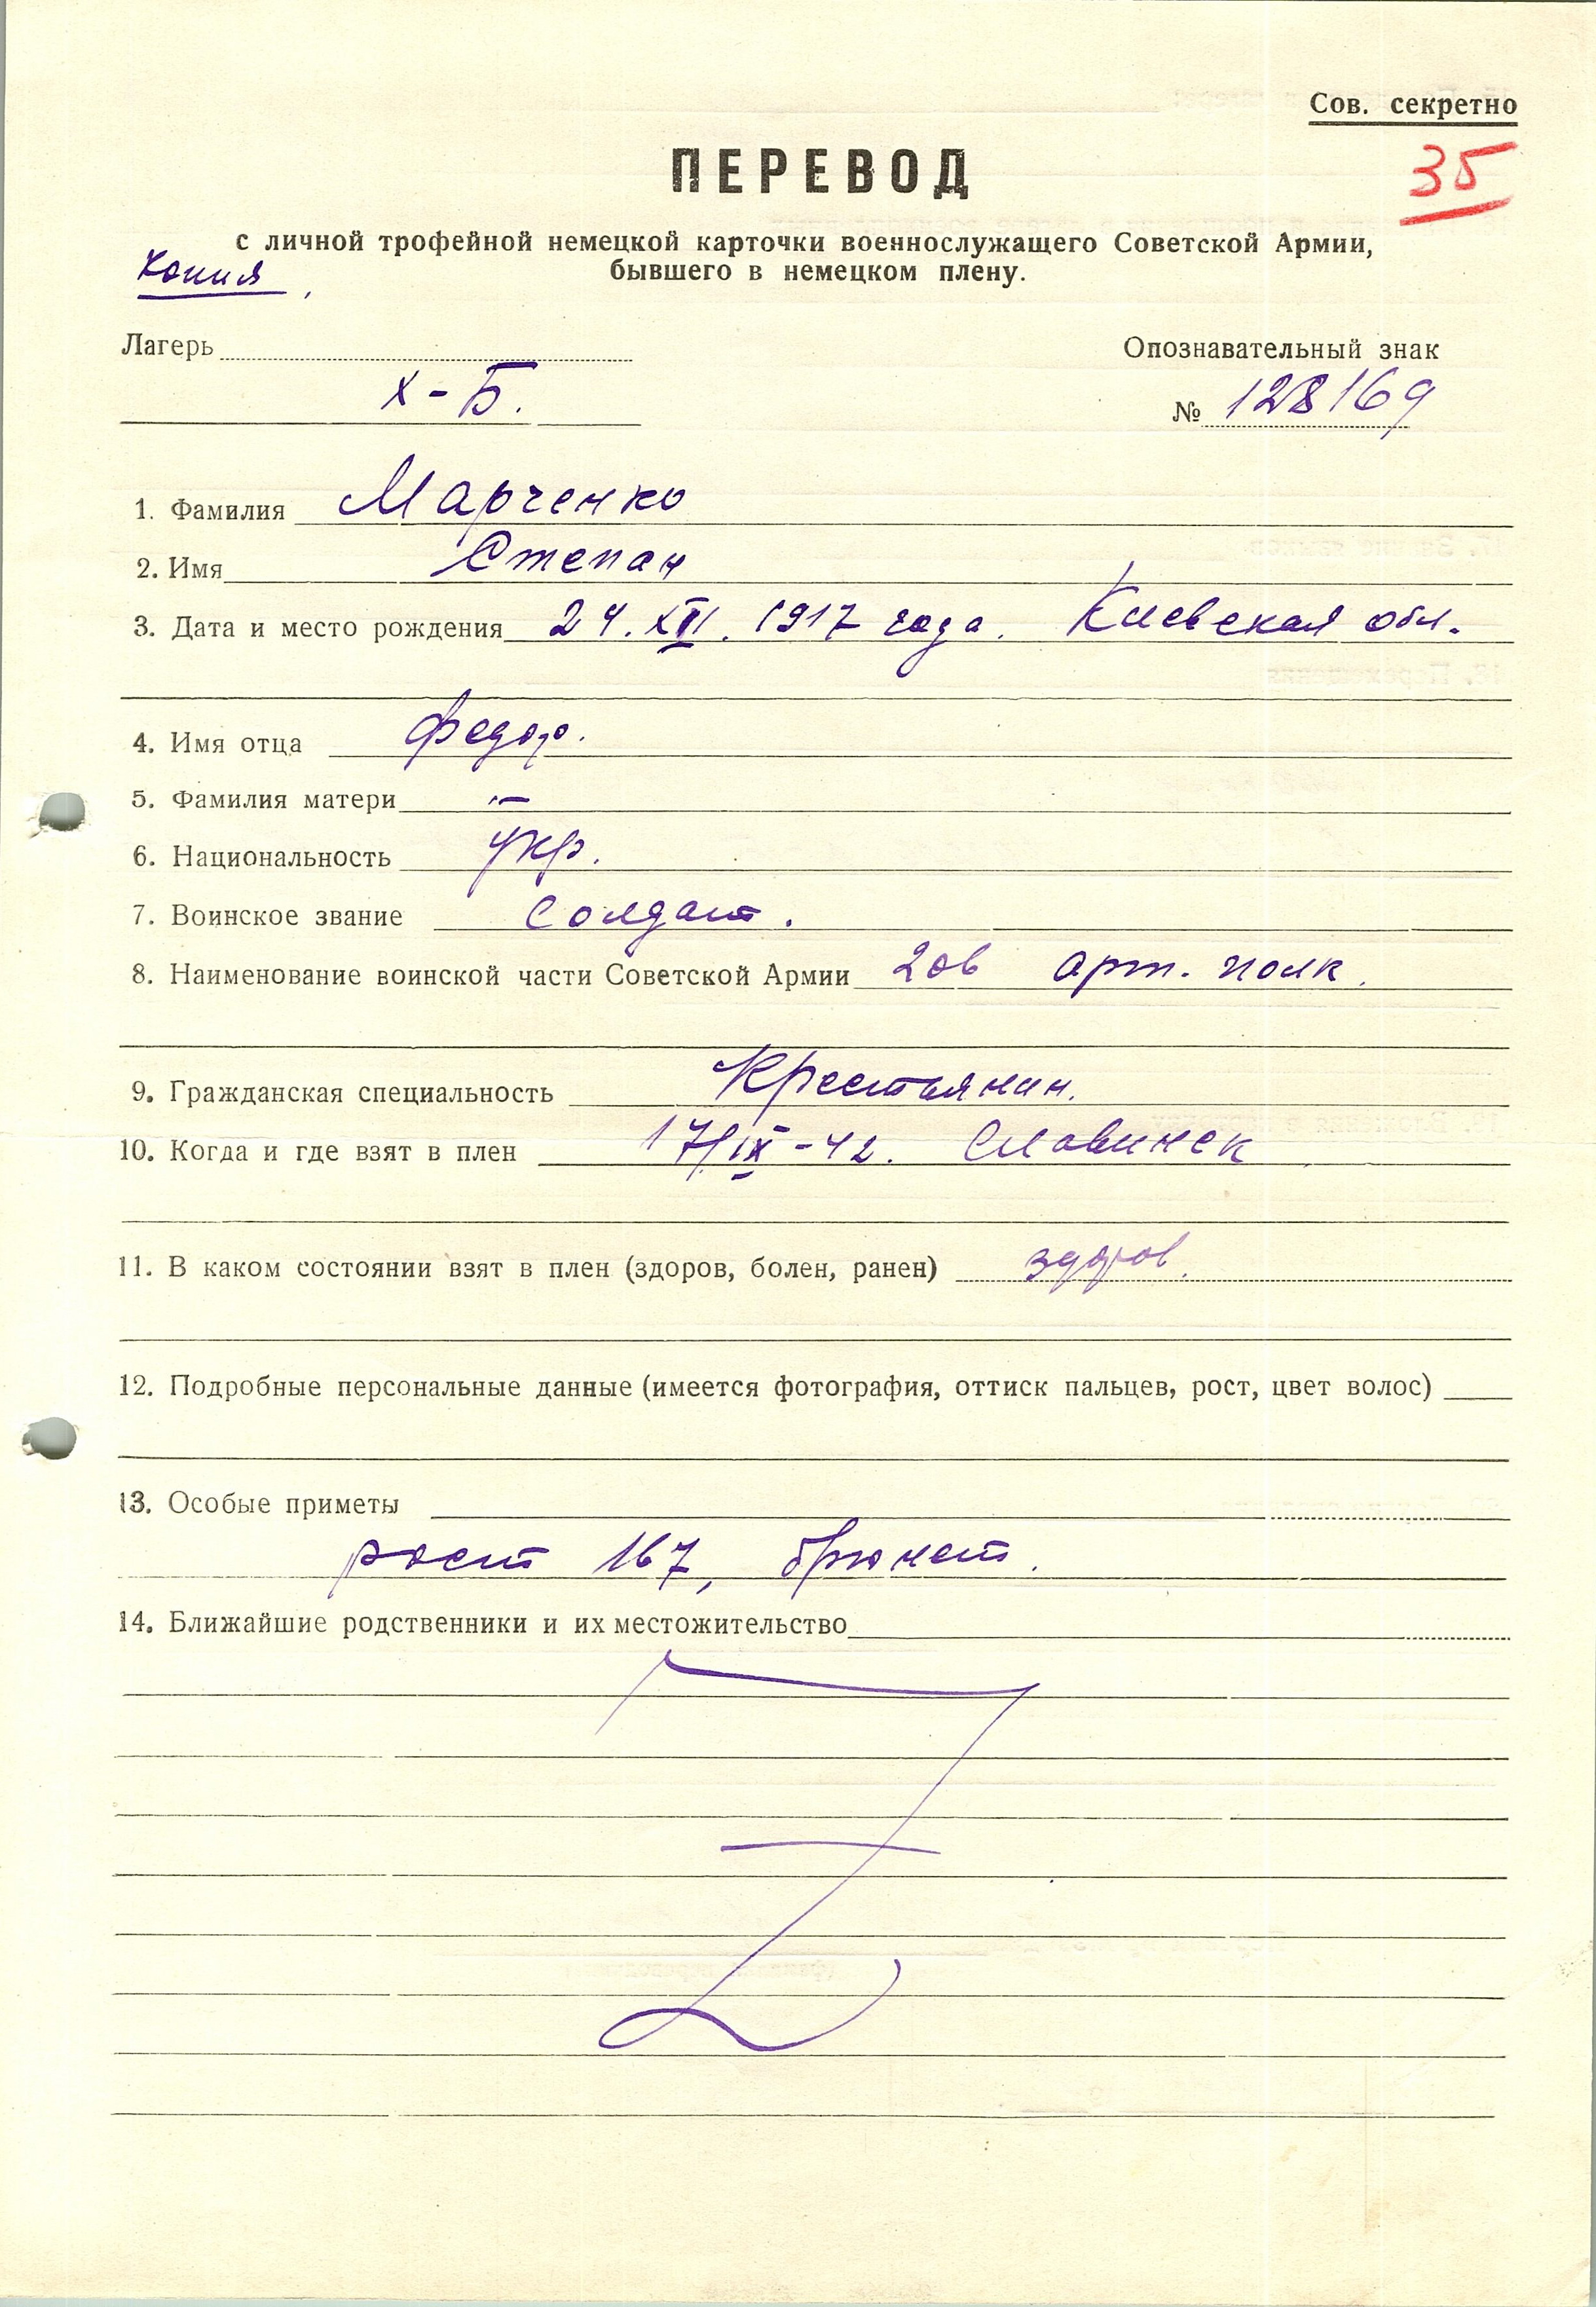 Сов. секретно
35
ПЕРЕВОД
с личной трофейной немецкой карточки военнослужащего Советской Армии,
бывшего в немецком плену.
Копия
Лагерь
Х-Б.
Опознавательный знак
№ 128169
1. Фамилия Марченко
2. Имя Степан
3. Дата и место рождения 24.XII.1917 года. Киевская обл.
4. Имя отца Федор.
5. Фамилия матери —
6. Национальность Укр.
7. Воинское звание Солдат.
8. Наименование воинской части Советской Армии 206 арт. полк.
9. Гражданская специальность Крестьянин.
10. Когда и где взят в плен 17/IX-42. Славинск
11. В каком состоянии взят в плен (здоров, болен, ранен) здоров.
12. Подробные персональные данные (имеется фотография, оттиск пальцев, рост, цвет волос)
13. Особые приметы
рост 167, брюнет.
14. Ближайшие родственники и их местожительство